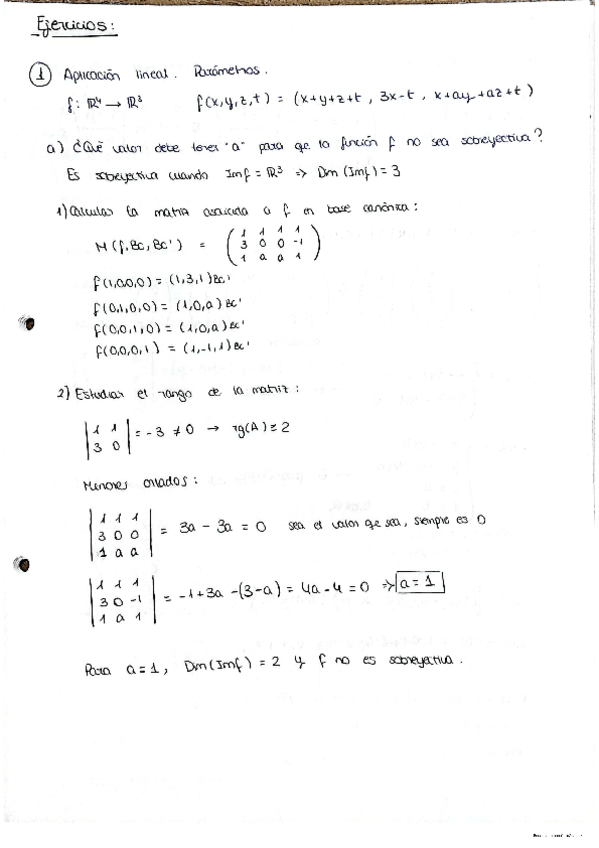 Ejercicios:
1 Aplicación lineal. Parámetros.
f: ℝ⁴ → ℝ³ f(x,y,z,t) = (x+y+z+t, 3x-t, x+ay+az+t)
a) ¿Qué valor debe tener "a" para que la función f no sea sobreyectiva?
Es sobreyectiva cuando Imf = ℝ³ => Dm(Imf) = 3
1) Calcular la matriz asociada a f en base canónica:
M(f,Bc,Bc') = ( 1 1 1 1
3 0 0 -1
1 a a 1 )
f(1,0,0,0) = (1,3,1)Bc'
f(0,1,0,0) = (1,0,a)Bc'
f(0,0,1,0) = (1,0,a)Bc'
f(0,0,0,1) = (1,-1,1)Bc'
2) Estudiar el rango de la matriz:
| 1 1
3 0 | = -3 ≠ 0 → rg(A) ≥ 2
Menores orlados:
| 1 1 1
3 0 0
1 a a | = 3a - 3a = 0 sea el valor que sea, siempre es 0
| 1 1 1
3 0 -1
1 a 1 | = -1+3a -(3-a) = 4a-4 = 0 => a = 1
Para a=1, Dm(Imf) = 2 y f no es sobreyectiva.